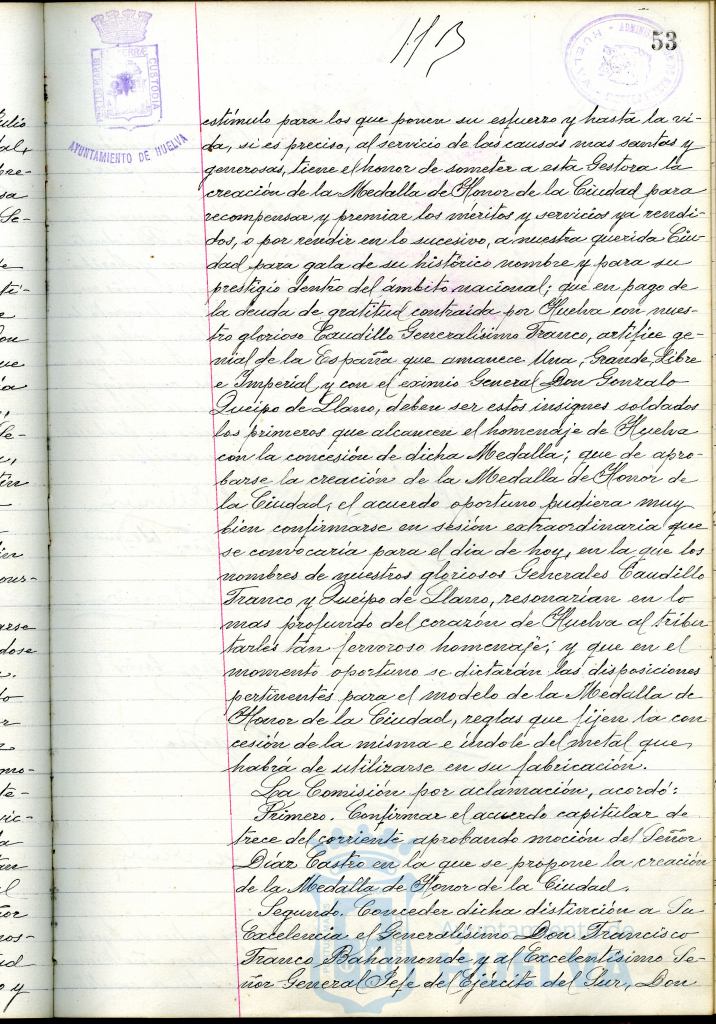 113
53
AYUNTAMIENTO DE HUELVA
estímulo para los que ponen su esfuerzo y hasta la vi-
da, si es preciso, al servicio de las causas mas santas y
generosas, tiene el honor de someter a esta Gestora la
creación de la Medalla de Honor de la Ciudad para
recompensar y premiar los méritos y servicios ya rendi-
dos, o por rendir en lo sucesivo, a nuestra querida Ciu-
dad para gala de su histórico nombre y para su
prestigio dentro del ámbito nacional; que en pago de
la deuda de gratitud contraída por Huelva con nues-
tro glorioso Caudillo Generalísimo Franco, artífice ge-
nial de la España que amanece Una, Grande, Libre
e Imperial y con el eximio General Don Gonzalo
Queipo de Llano, deben ser estos insignes soldados
los primeros que alcancen el homenaje de Huelva
con la concesión de dicha Medalla; que de apro-
barse la creación de la Medalla de Honor de
la Ciudad, el acuerdo oportuno pudiera muy
bien confirmarse en sesión extraordinaria que
se convocaría para el dia de hoy, en la que los
nombres de nuestros gloriosos Generales Caudillo
Franco y Queipo de Llano, resonarían en lo
mas profundo del corazón de Huelva al tribu
tarles tan fervoroso homenaje; y que en el
momento oportuno se dictarán las disposiciones
pertinentes para el modelo de la Medalla de
Honor de la Ciudad, reglas que fijen la con
cesión de la misma e índole del metal que
habrá de utilizarse en su fabricación.
La Comisión por aclamación, acordó:
Primero. Confirmar el acuerdo capitular de
trece del corriente aprobando moción del Señor
Díaz Castro en la que se propone la creación
de la Medalla de Honor de la Ciudad.
Segundo. Conceder dicha distinción a Su
Excelencia el Generalísimo Don Francisco
Franco Bahamonde y al Excelentísimo Se-
ñor General Jefe del Ejército del Sur, Don
Ayuntamiento de
HUELVA